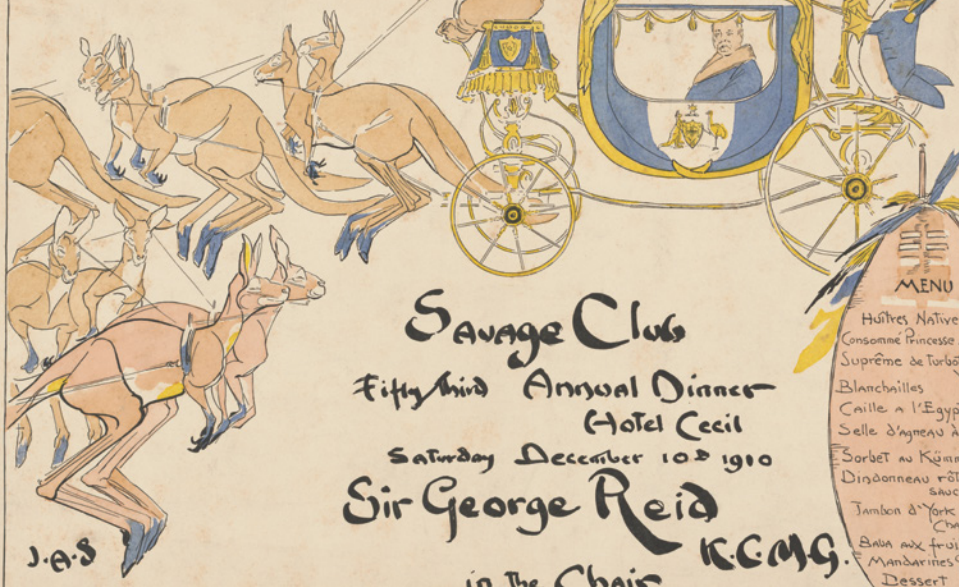 Savage Club
Fifty third Annual Dinner
Hotel Cecil
Saturday December 10D 1910
Sir George Reid
K.C.M.G.
in The Chair
J.A.S
MENU
Huîtres Native
Consommé Princesse
Suprême de Turbo
Blanchailles
Caille a l'Egyp
Selle d'agneau à
Sorbet au Kümm
Dindonneau rôt
sauc
Jambon d'York
Cha
Baba aux frui
Mandarines
Dessert